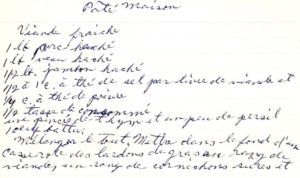 Pâté Maison
Viande fraîche
1 lb porc haché
1 lb veau haché
1/2 lb jambon haché
1/2 à 1 c. à thé de sel par livre de viande et
1/4 c. à thé de poivre
1/2 tasse de consommé
une pincée de thym et un peu de persil
1 oeuf battu
Mélanger le tout. Mettre dans le fond d'un
casserole des lardons de gras un rang de
viande, un rang de cornichons surés et